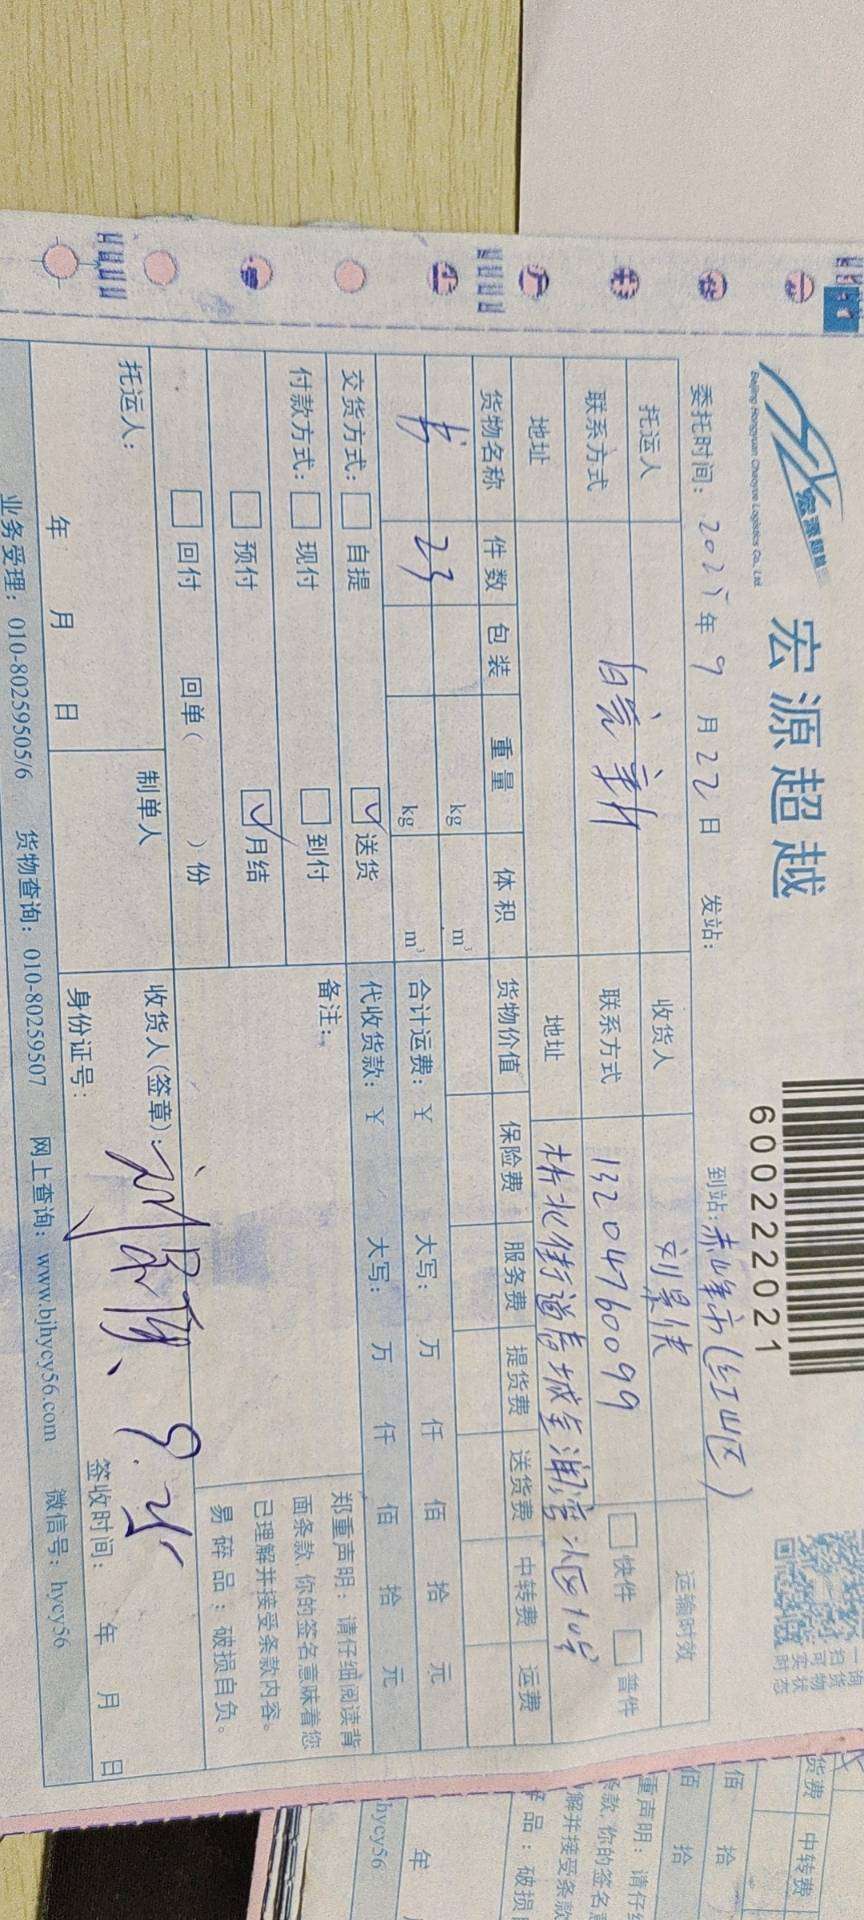 宏源超越
Beijing Hongyuan Chaoyue Logistics Co., Ltd.
宏源超越
600222021
委托时间：2025年9月22日 发站： 到站：赤峰市(红山区)
托运人 收货人 刘景侠 运输时效
联系方式 联系方式 13204760099 快件 普件
地址 地址 桥北街道春城金润湾
货物名称 件数 包装 重量 体积 货物价值 保险费 服务费 提货费 送货费 中转费 运费
书 23 kg m³
kg m³ 合计运费：¥ 大写： 万 仟 佰 拾 元
交货方式： 自提 送货 代收货款：¥ 大写： 万 仟 佰 拾 元
付款方式： 现付 到付 备注：
预付 月结
回付 回单( )份
郑重声明：请仔细阅读背
面条款，你的签名意味着您
已理解并接受条款内容。
易碎品：破损自负。
托运人： 制单人 收货人(签章)：
年 月 日 身份证号： 签收时间： 年 月 日
业务受理：010-80259505/6 货物查询：010-80259507 网上查询：www.bjhycy56.com 微信号：hycy56
货费 中转费
佰 拾
佰 拾
重声明：请仔细
条款，你的签名意
解并接受条款
品：破损
年
hycy56